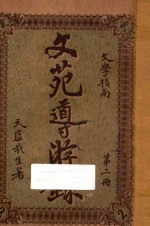 文學指南
第二冊
文苑導游錄
天虛我生著